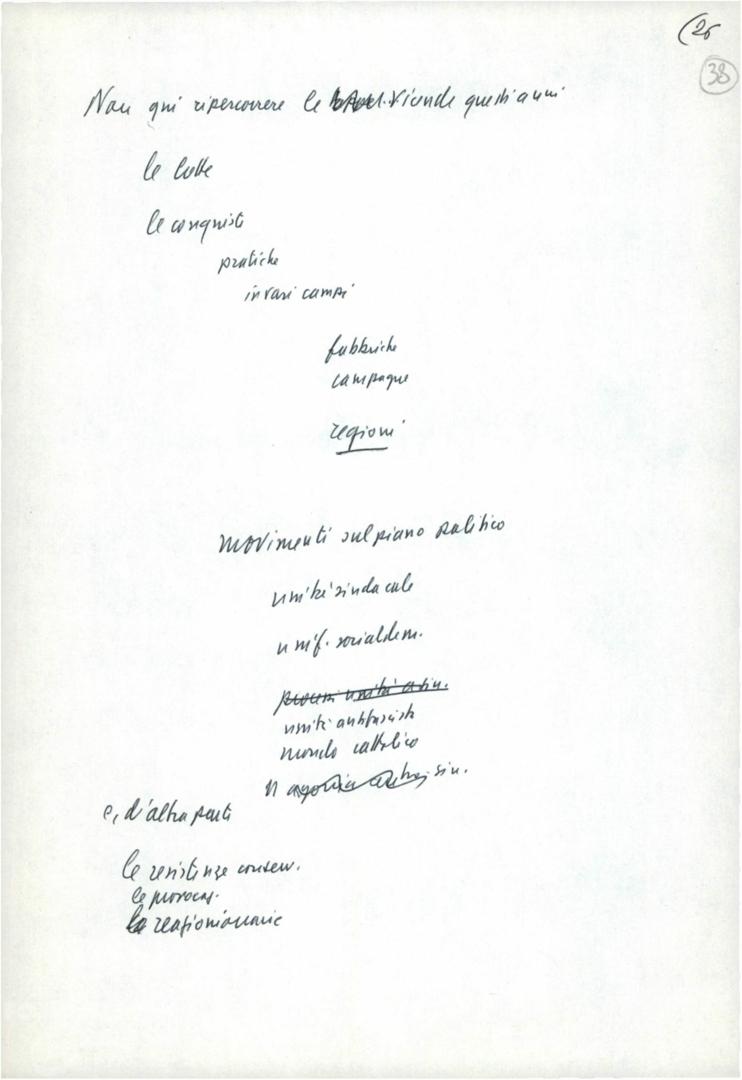 (26
38
Non qui ripercorrere le vicende questi anni
le lotte
le conquiste
pratiche
in vari campi
fabbriche
campagne
regioni
movimenti sul piano politico
unità sindacale
unif. socialdem.
processi unità a sin.
unità antifascista
mondo cattolico
agonia centrosin.
e, d'altra parte
le resistenze conserv.
le provoc.
la reazionarie